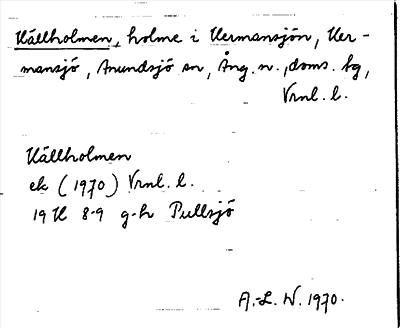 Källholmen, holme i Hermansjön, Her-
mansjö, Anundsjö sn, Ång. n., doms. bg,
Vrnl. l.
Källholmen
ek (1970) Vrnl. l.
19 H 8-9 g-h Pullsjö
A.-L. W. 1970.